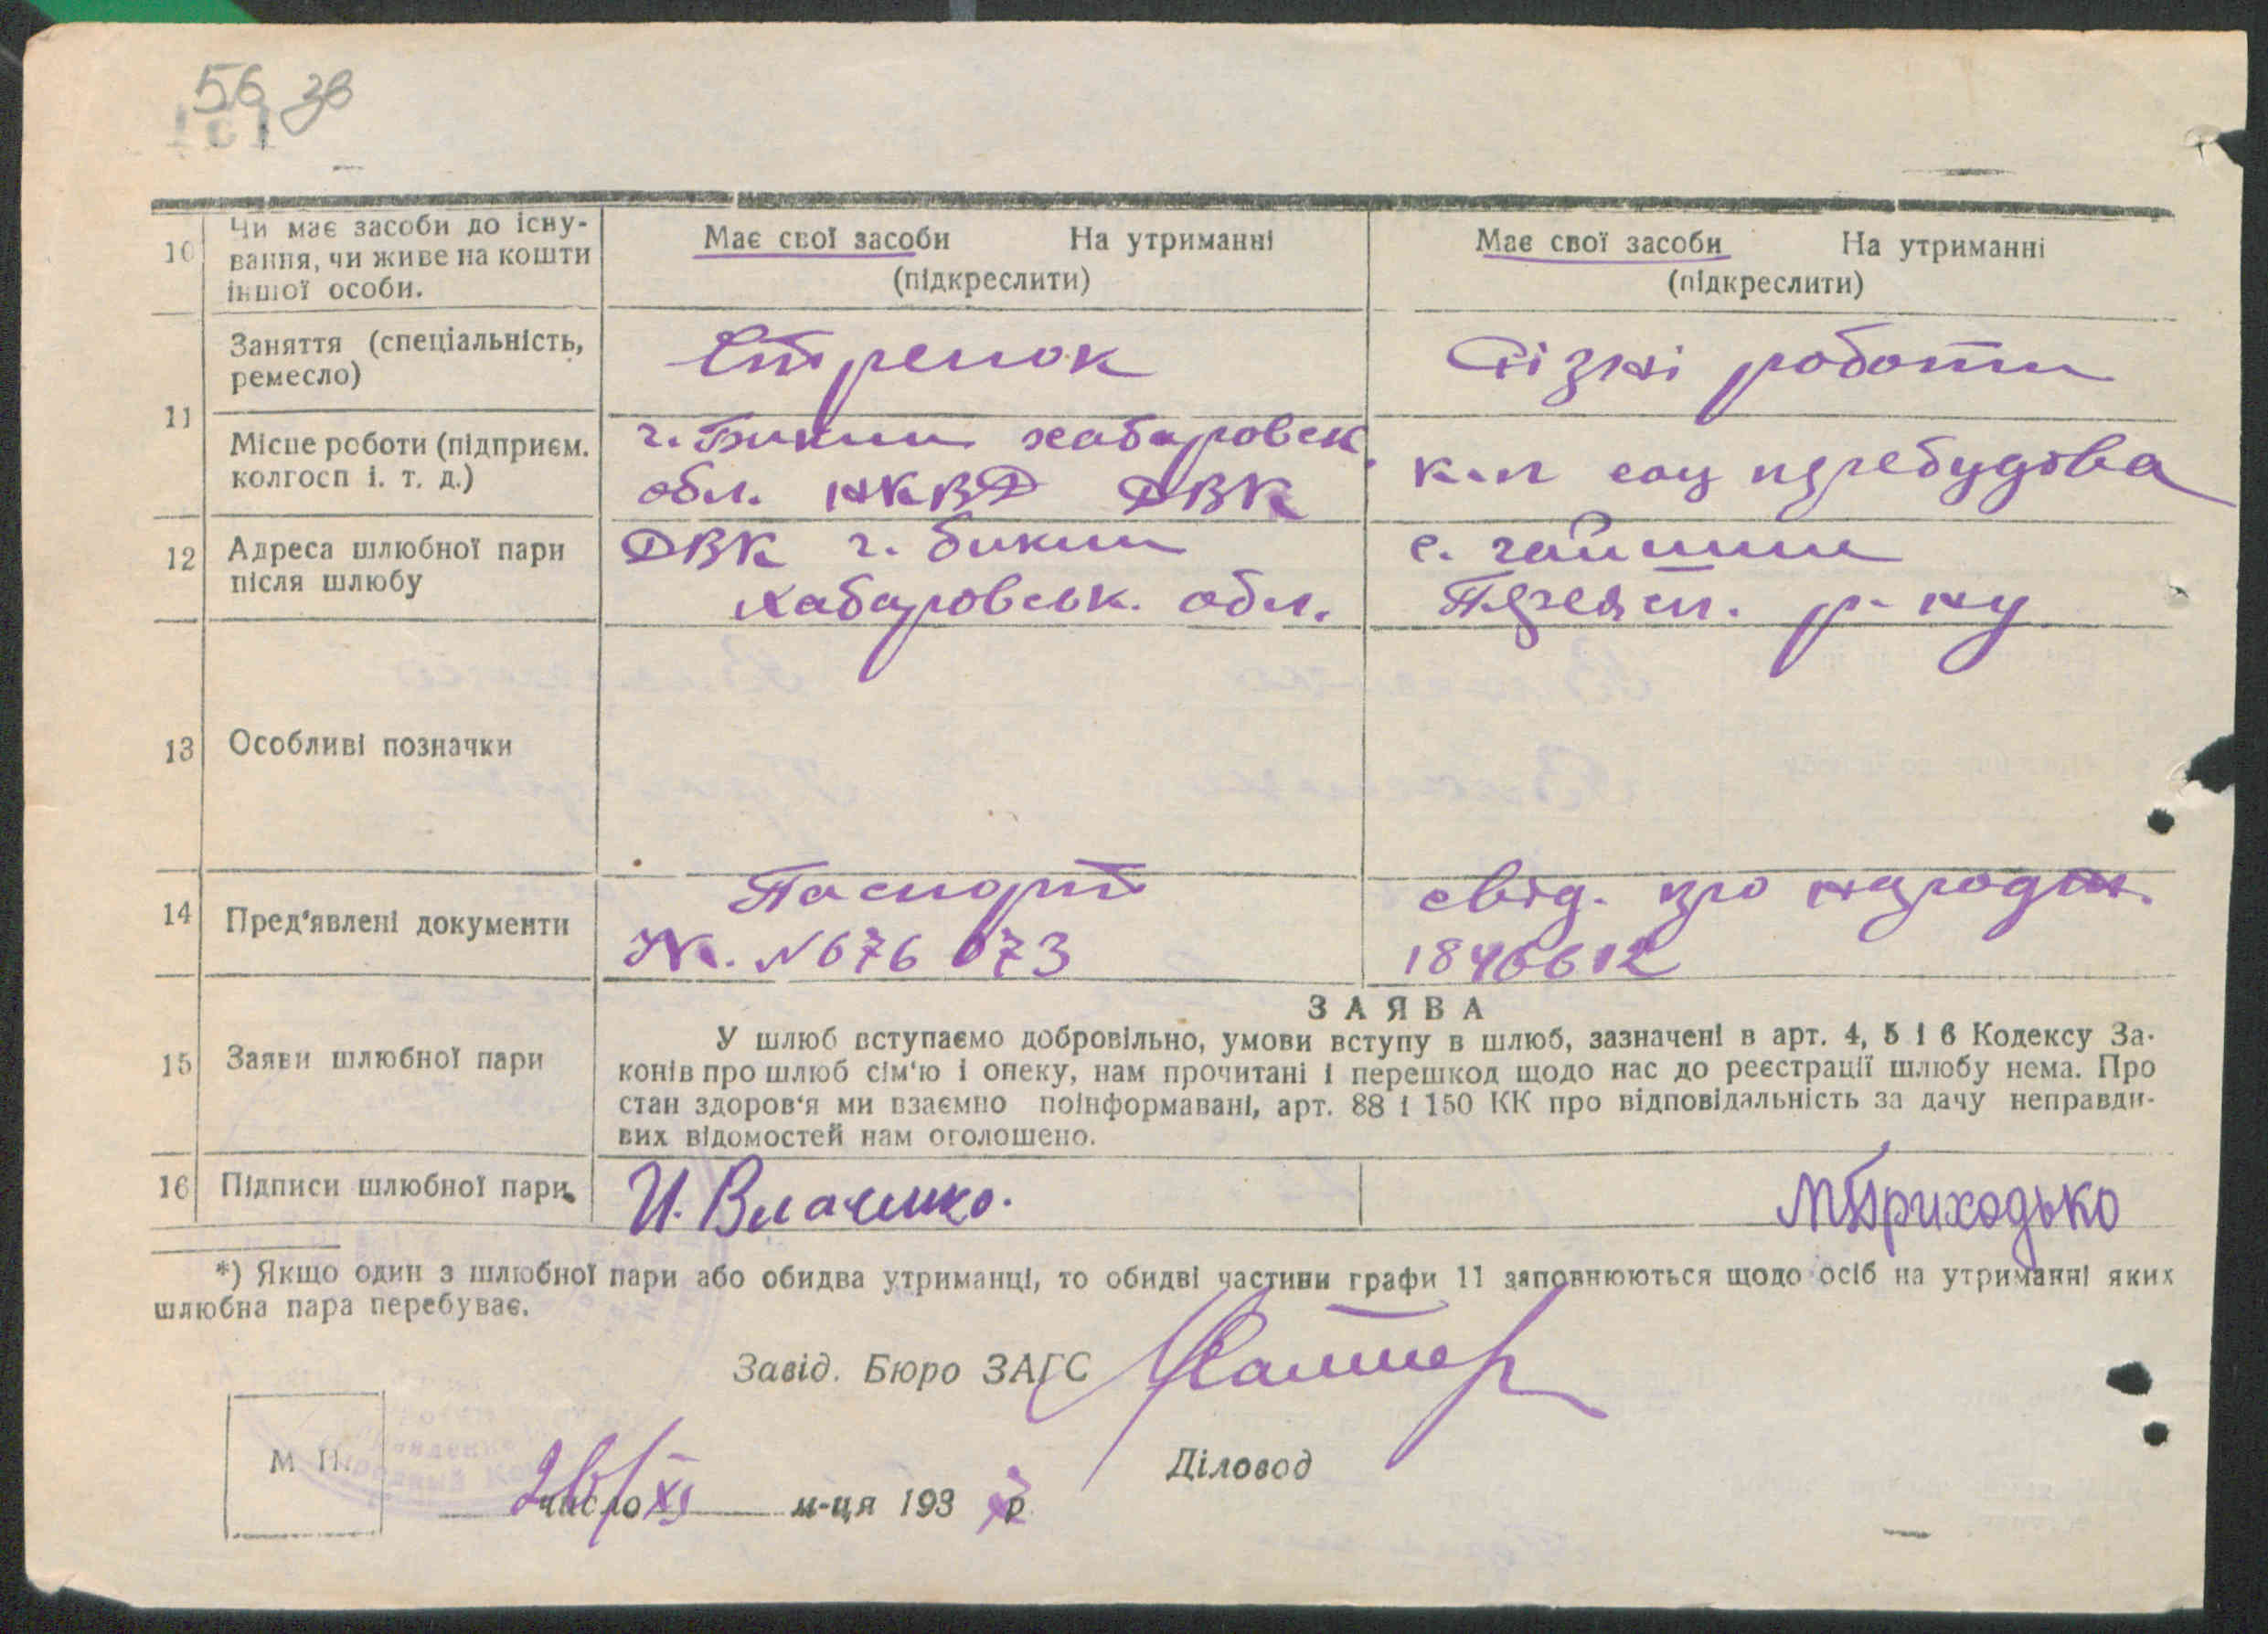 56 зв
10 Чи має засоби до існу-
вання, чи живе на кошти
іншої особи.
Має свої засоби На утриманні
(підкреслити)
Має свої засоби На утриманні
(підкреслити)
11 Заняття (спеціальність,
ремесло)
Стрелок
Різні роботи
Місце роботи (підприєм.
колгосп і. т. д.)
г. Бикин хабаровск.
обл. НКВД ДВК
к-п соц перебудова
12 Адреса шлюбної пари
після шлюбу
ДВК г. бикин
Хабаровськ. обл.
с. гайшин
Переясл. р-ну
13 Особливі позначки
14 Пред'явлені документи
Паспорт
№. N 676 073
свід. про народж.
1846612
15 Заяви шлюбної пари
ЗАЯВА
У шлюб вступаємо добровільно, умови вступу в шлюб, зазначені в арт. 4, 5 і 6 Кодексу За-
конів про шлюб сім'ю і опеку, нам прочитані і перешкод щодо нас до реєстрації шлюбу нема. Про
стан здоров'я ми взаємно поінформавані, арт. 88 і 150 КК про відповідальність за дачу неправди-
вих відомостей нам оголошено.
16 Підписи шлюбної пари
И. Власенко.
М Приходько
*) Якщо один з шлюбної пари або обидва утриманці, то обидві частини графи 11 заповнюються щодо осіб на утриманні яких
шлюбна пара перебуває.
Завід. Бюро ЗАГС
М П.
Діловод
26/XI число м-ця 1937 р.